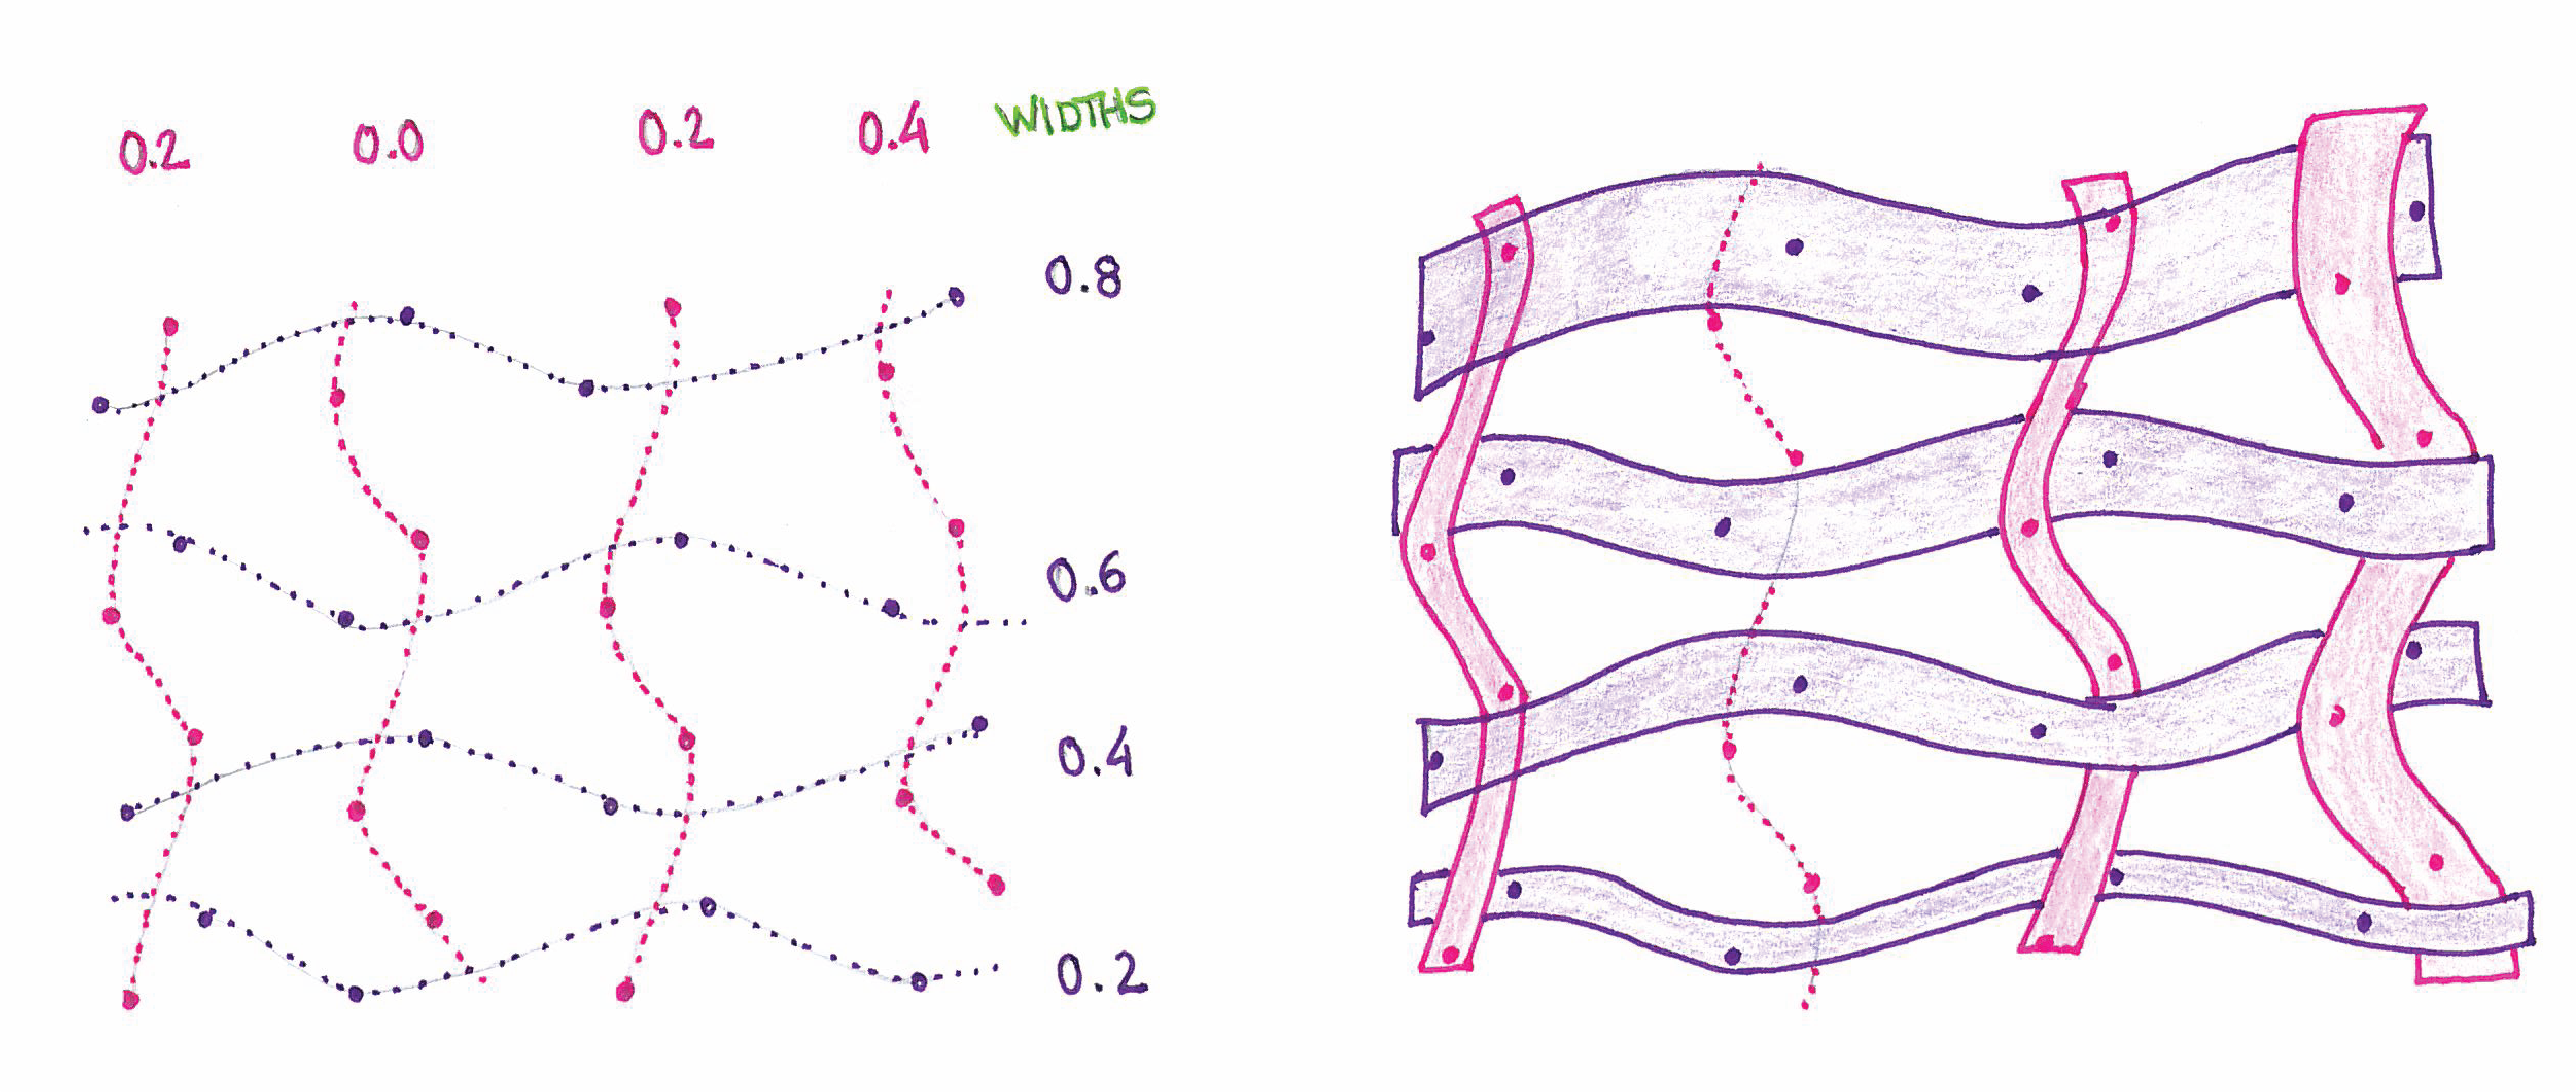 0.2 0.0 0.2 0.4 WIDTHS
0.8
0.6
0.4
0.2